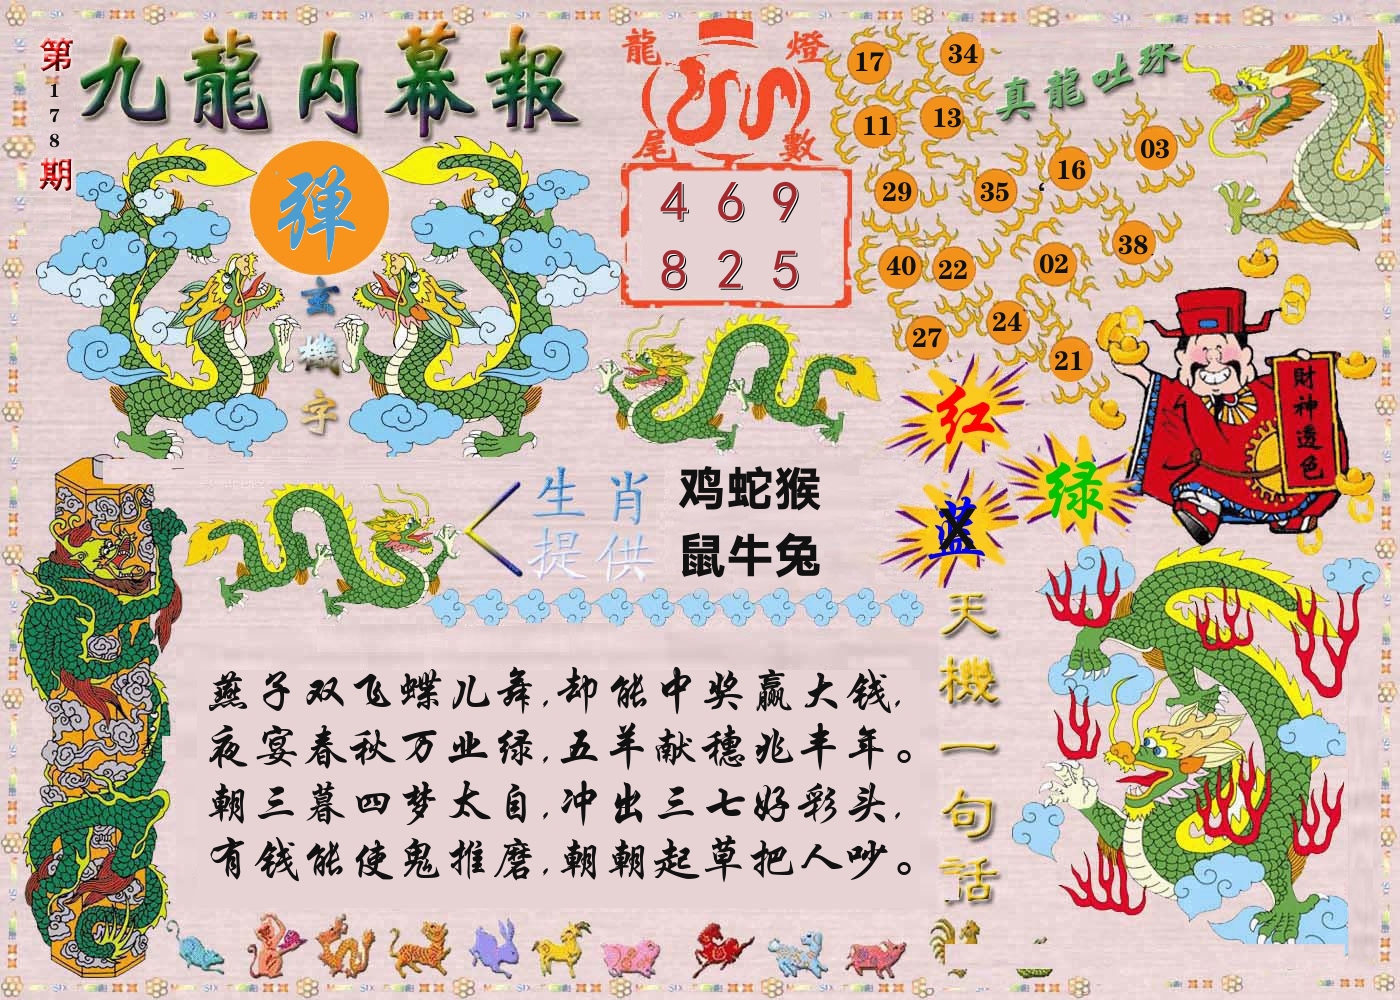 第178期
九龍内幕報
弹
玄機字
龍燈
尾數
4 6 9
8 2 5
真龍吐珠
17
34
11
13
03
16
29
35
38
40
22
02
24
27
21
財神透色
红
绿
蓝
生肖
提供
鸡蛇猴
鼠牛兔
天機一句話
燕子双飞蝶儿舞,却能中奖赢大钱,
夜宴春秋万业绿,五羊献穗兆丰年。
朝三暮四梦太自,冲出三七好彩头,
有钱能使鬼推磨,朝朝起草把人吵。